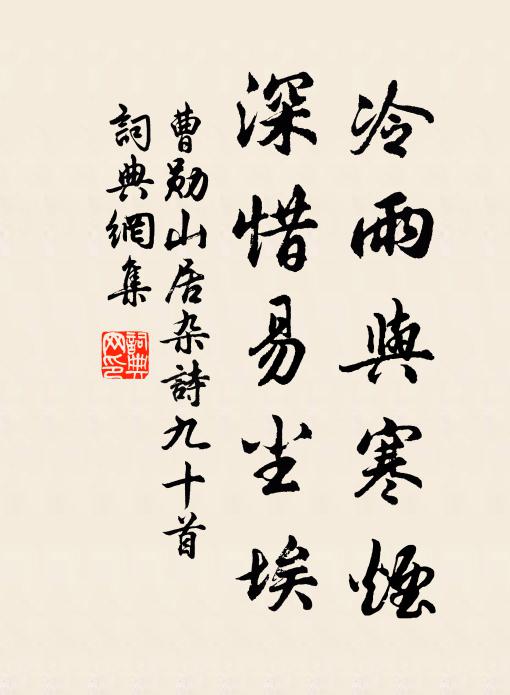 冷雨與寒煙
深惜易尘埃
曹勛山居杂詩九十首
詞典網集
詞典网印